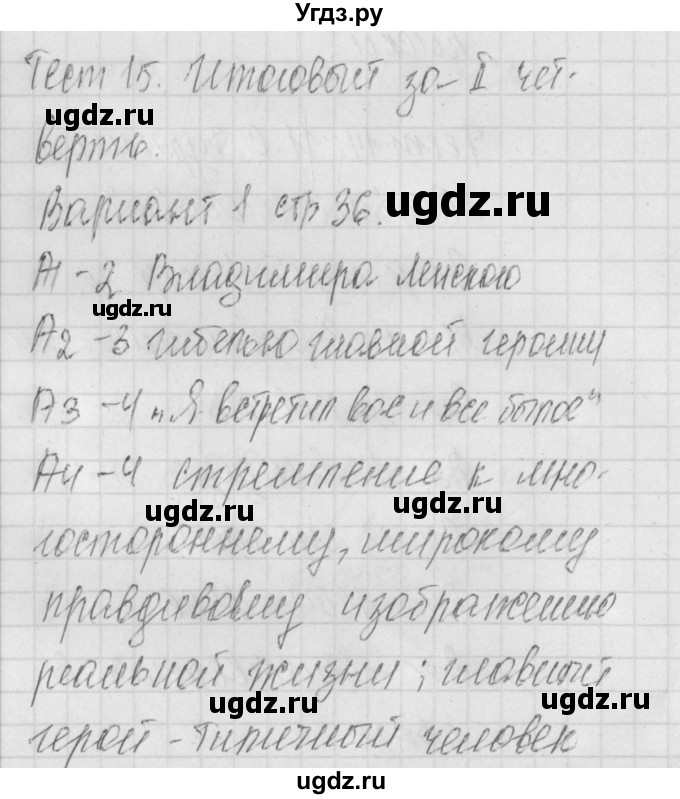 Угдз.ру
Тест 15. Итоговый за II чет-
верть.
Вариант 1 стр 36.
А1 - 2 Владимира Ленского
А2 - 3 гибелью главной героини
А3 - 4 „Я встретил вас и все былое"
А4 - 4 стремление к мно-
гостороннему, широкому
правдивому изображению
реальной жизни; главный
герой - типичный человек
ugdz.ru
ugdz.ru
ugdz.ru
ugdz.ru
ugdz.ru
ugdz.ru
ugdz.ru
ugdz.ru